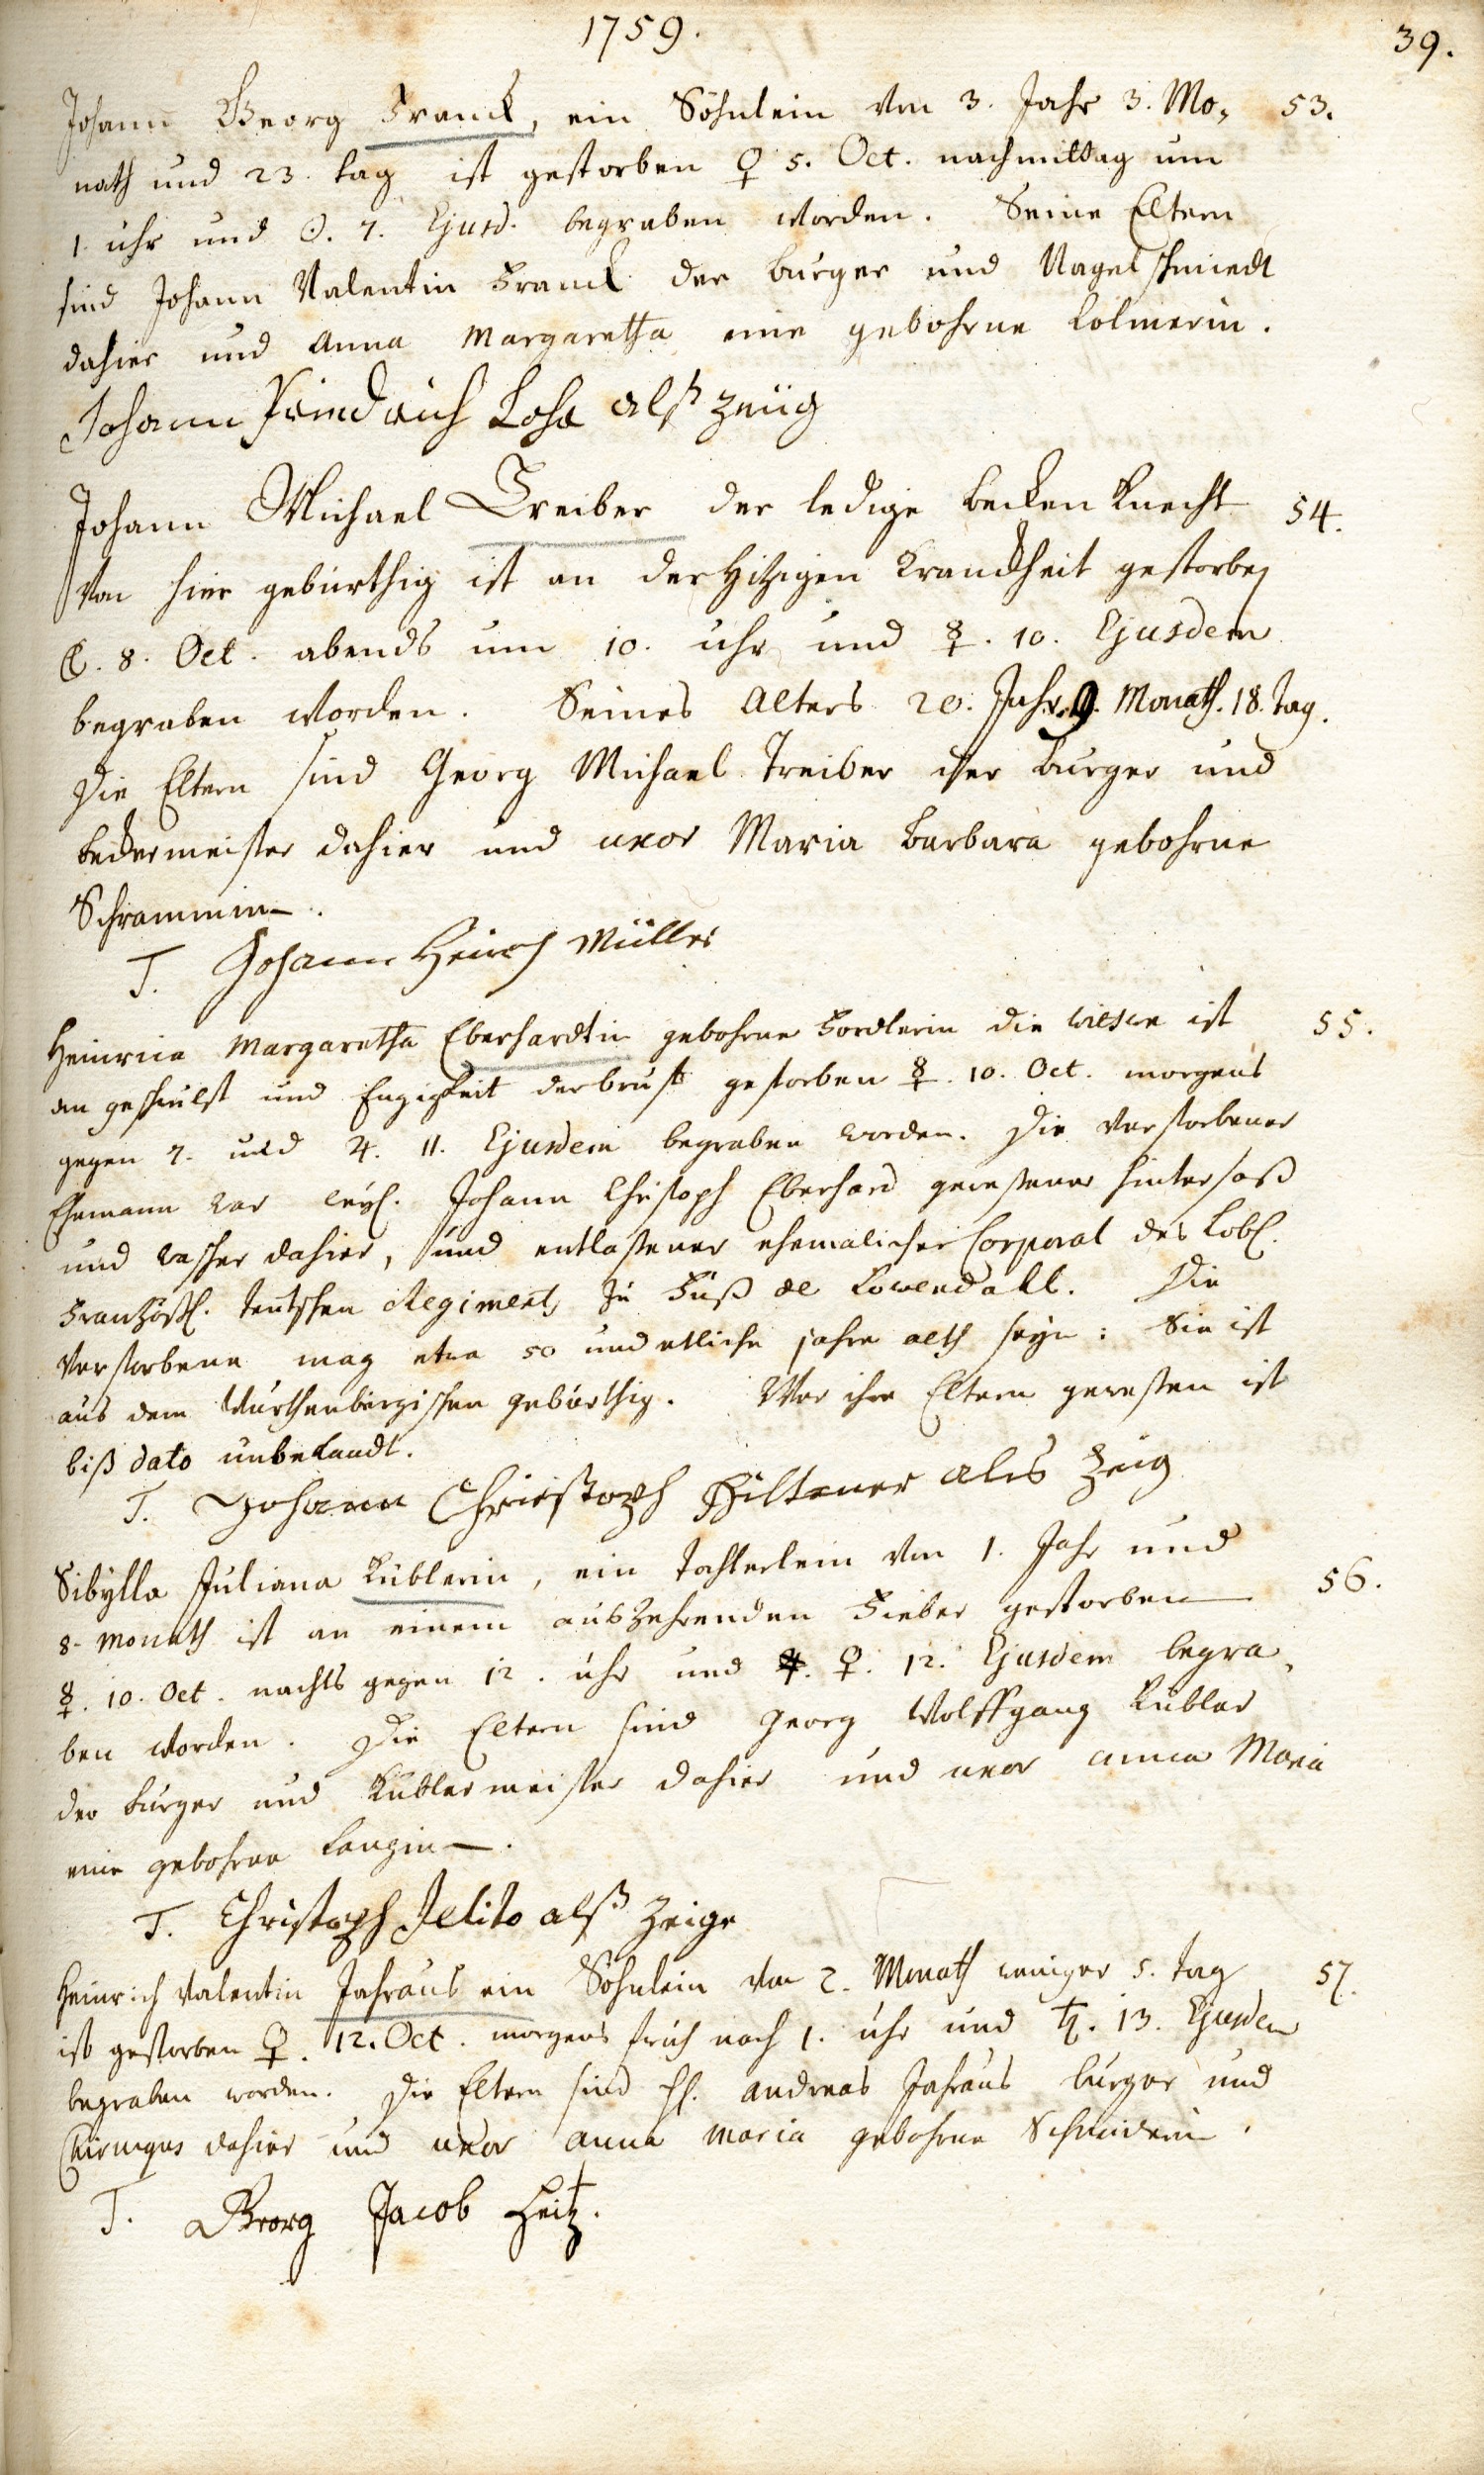 1759.
39.
Johann Georg Franck, ein Söhnlein von 3. Jahr 3. Mo- 53.
nath und 23. tag ist gestorben ♀ 5. Oct. nachmittag um
1. uhr und ☉. 7. Ejusd. begraben worden. Seine Eltern
sind Johann Valentin Franck der burger und Nagelschmiedt
dahier und Anna Margaretha eine gebohrne Colmerin.
Johann Friedrich Lohr alß zeüg
Johann Michael Treiber der ledige becken Knecht 54.
von hier gebürthig ist an der hitzigen Kranckheit gestorben
☾. 8. Oct. abends um 10. uhr und ☿. 10. Ejusdem
begraben worden. Seines Alters 20. Jahr. 9. Monath. 18. Tag.
Die Eltern sind Georg Michael Treiber der burger und
beckermeister dahier und uxor Maria Barbara gebohrne
Schrammin.
T. Johann Heinrch Müller
Heinrica Margaretha Eberhardtin gebohrne die wittwe ist 55.
an geschwulst und Engigkeit der brust gestorben ☿. 10. Oct. morgens
gegen 7. und ♃. 11. Ejusdem begraben worden. Die verstorbener
Ehemann war weyl. Johann Christoph Eberhard gewesener hintersaß
und dahier, und entlassener ehemalicher Corporal des Löbl.
Französl. teutschen Regiment zu Fuß de Lowendall. Die
verstorbene mag etwa 50 und etliche jahre alth seyn: Sie ist
aus dem Würthenbergischen gebürthig. Wer ihre Eltern gewesen ist
biß dato unbekandt.
T. Johann Christoph Hiltner als Zeig
Sibylla Juliana Küblerin, ein Töchterlein von 1. Jahr und 56.
8. Monath ist an einem auszehrenden Fieber gestorben
☿. 10. Oct. nachts gegen 12. uhr und ♀. 12. Ejusdem begra-
ben worden. Die Eltern sind Georg Wolffgang Kübler
der burger und Küblermeister dahier und uxor anna Maria
eine gebohrne Langin.
T. Christoph Jelito alß Zeige
Heinrich Valentin Jahraus ein Söhnlein von 2. Monath weniger 5. tag 57.
ist gestorben ♀. 12. Oct. morgens früh nach 1. uhr und ♄. 13. Ejusdem
begraben worden. Die Eltern sind H. andreas Jahraus burger und
Chirurgus dahier und uxor anna maria gebohrne Schneiderin.
T. Georg Jacob Heitz.